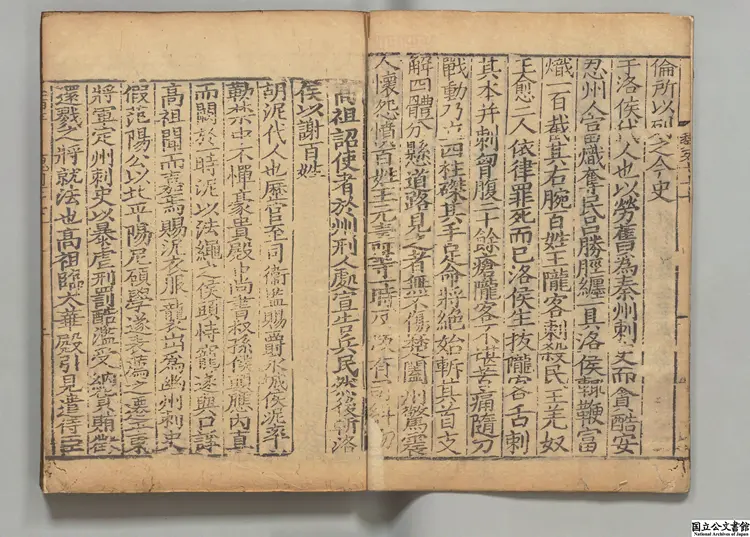 倫所以列之今史
于洛侯代人也以勞舊為秦州刺史而貪酷安
忍州人富熾奪民呂勝脛纏一具洛侯輒鞭富
熾一百截其右腕百姓王隴客刺殺民王羌奴
王愈二人依律罪死而已洛侯生拔隴客舌刺
其本并刺胷腹二十餘瘡隴客不堪苦痛隨刀
戰動乃立四柱磔其手足命將絕始斬其首支
解四體分懸道路見之者無不傷楚闔州驚震
人懷怨憤百姓王元壽等一時反叛有司糾劾
高祖詔使者於州刑人處宣告兵民然後斬洛
侯以謝百姓
胡泥代人也歷官至司衛監賜爵永成侯泥率
勒禁中不憚豪貴殿中尚書叔孫侯頭應內直
而闕於時泥以法繩之侯頭恃寵遂與口諍
高祖聞而嘉焉賜泥衣服一襲出為幽州刺史
假范陽公以北平陽尼碩學遂表薦之遷平東
將軍定州刺史以暴虐刑罰酷濫受納貨賄徵
還戮之將就法也高祖臨太華殿引見遣侍臣
国立公文書館
National Archives of Japan